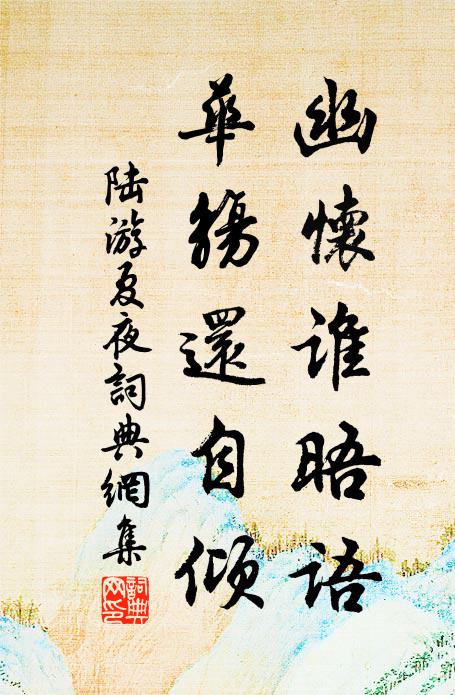 幽懷誰晤語
華觴還自傾
陸游夏夜詞典網集
詞典网印